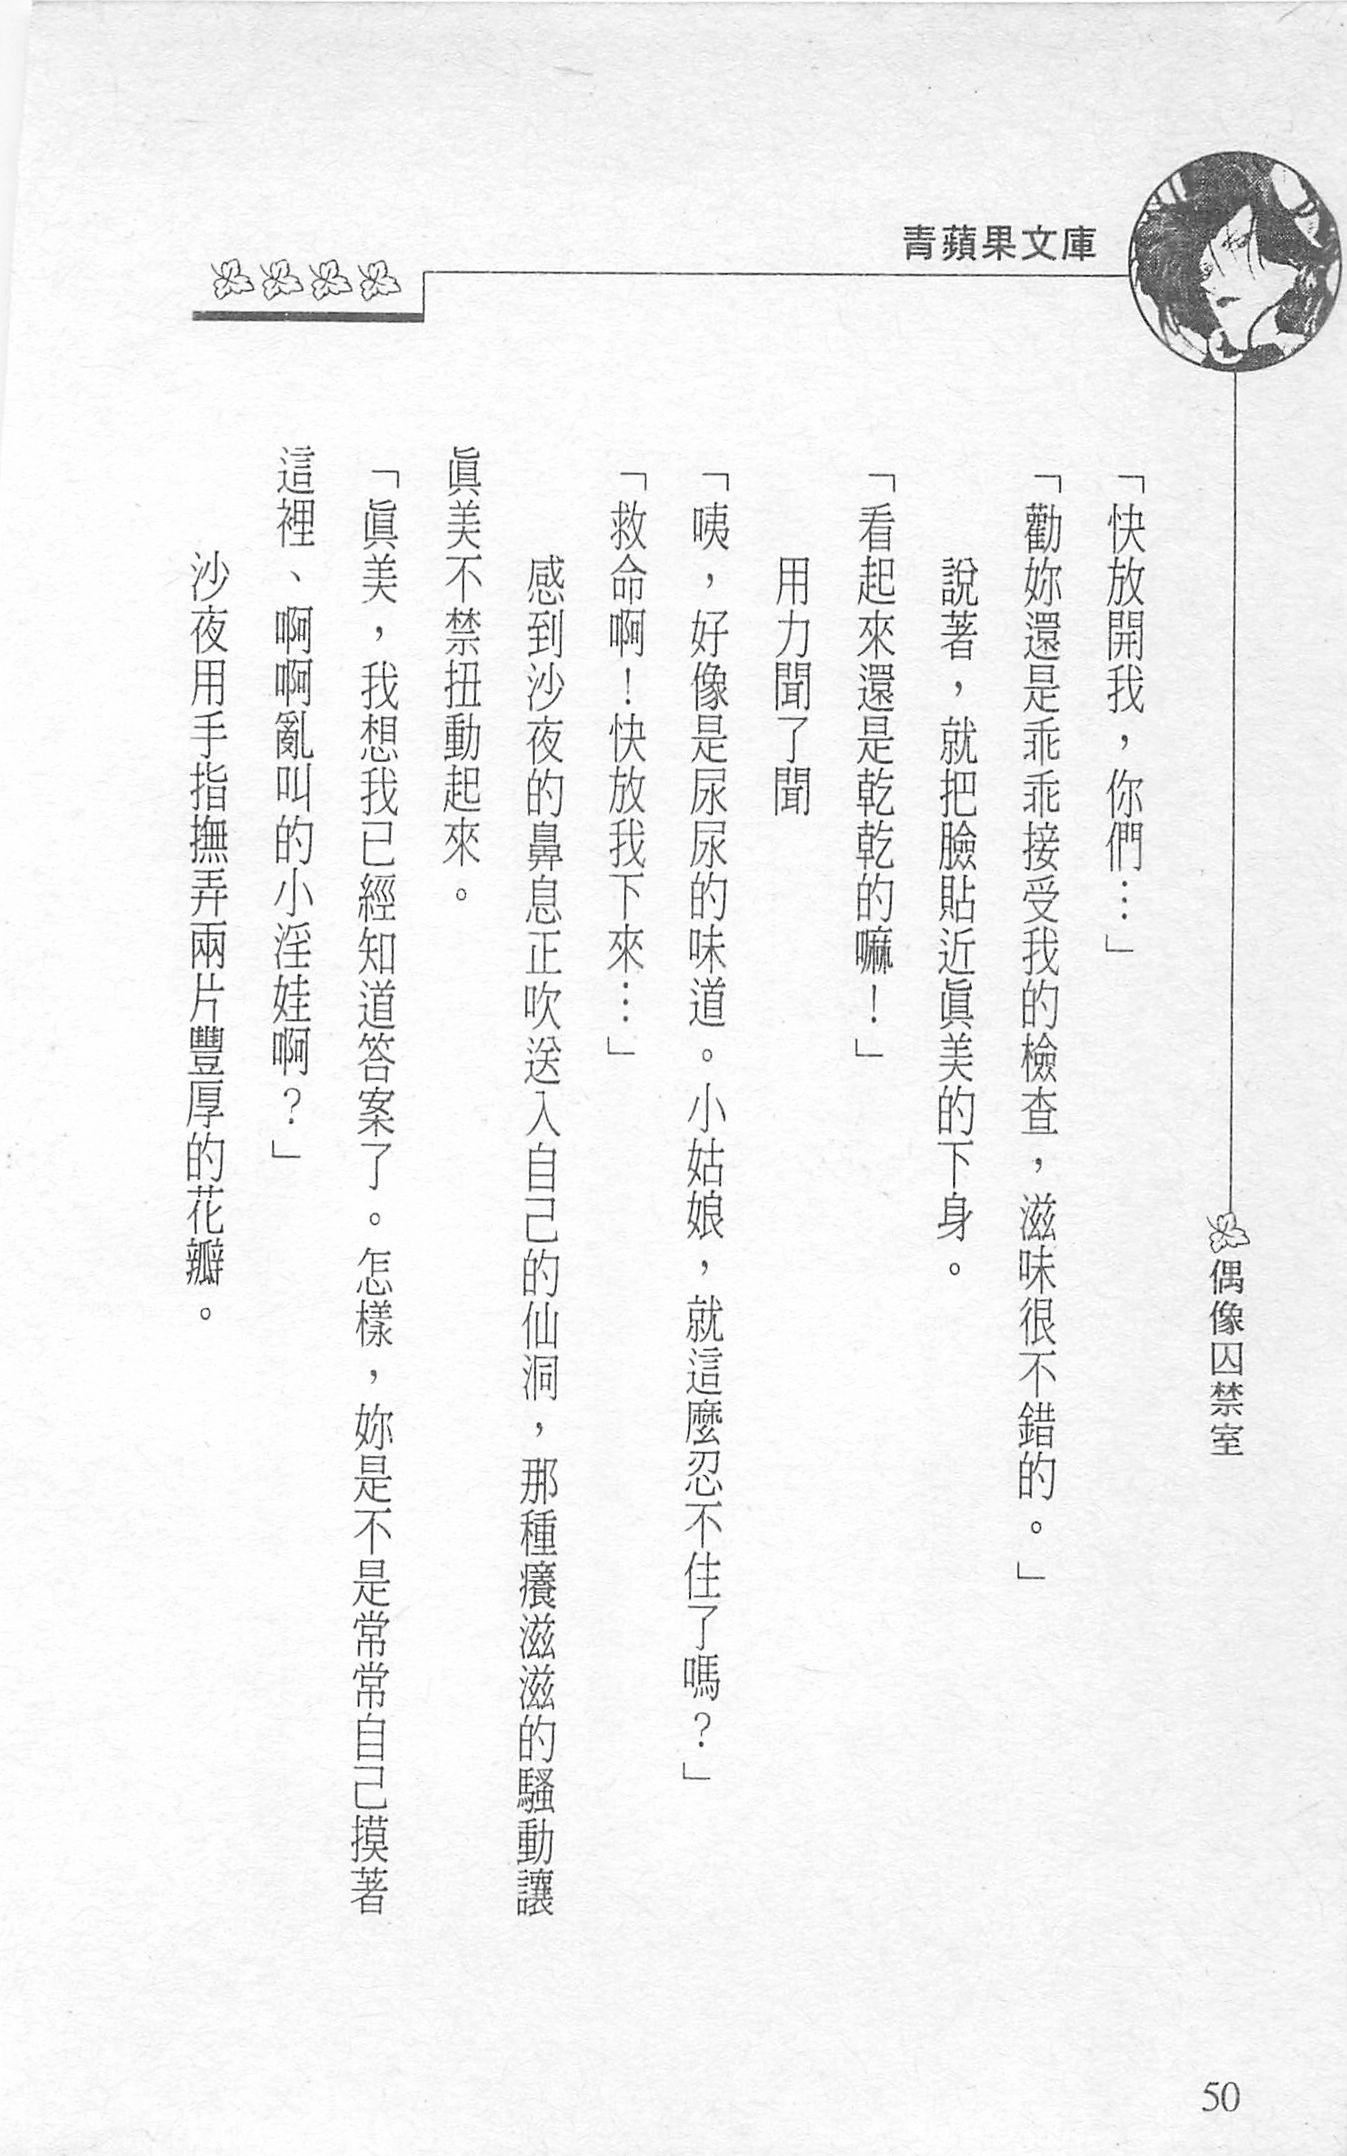 青蘋果文庫
偶像囚禁室
「快放開我，你們…」
「勸妳還是乖乖接受我的檢查，滋味很不錯的。」
說著，就把臉貼近眞美的下身。
「看起來還是乾乾的嘛！」
用力聞了聞
「咦，好像是尿尿的味道。小姑娘，就這麼忍不住了嗎？」
「救命啊！快放我下來…」
感到沙夜的鼻息正吹送入自己的仙洞，那種癢滋滋的騷動讓
眞美不禁扭動起來。
「眞美，我想我已經知道答案了。怎樣，妳是不是常常自己摸著
這裡、啊啊亂叫的小淫娃啊？」
沙夜用手指撫弄兩片豐厚的花瓣。
50